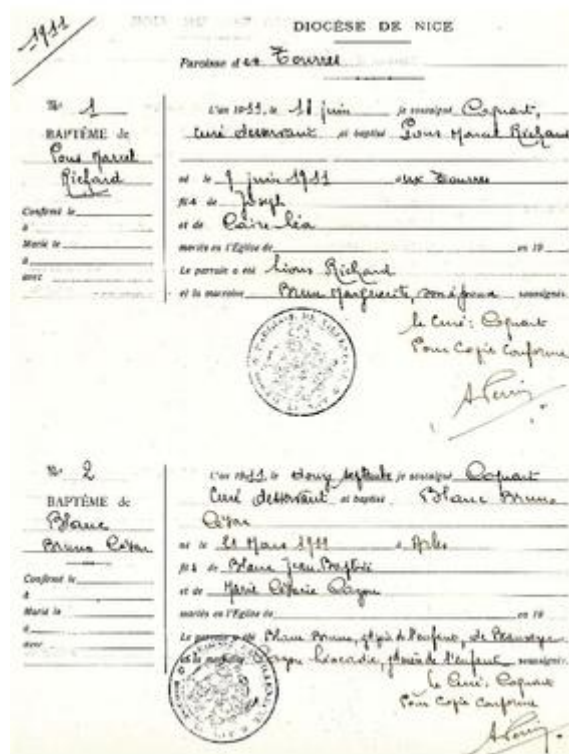 1911
DIOCÈSE DE NICE
Paroisse d es Tourres
No 1
BAPTÊME de
Pons Marcel
Richard
Confirmé le
à
Marié le
à
avec
L'an 1911, le 18 juin je soussigné Coquart,
Curé desservant ai baptisé Pons Marcel Richard
né le 9 juin 1911 aux Tourres
fils de Joseph
et de Caire Léa
mariés en l'Eglise de en 19
Le parrain a été Lions Richard
et la marraine Brun Marguerite, soussignés.
le Curé: Coquart
Pour Copie Conforme
No 2
BAPTÊME de
Blanc
Bruno César
Confirmé le
à
Marié le
à
avec
L'an 1911, le septembre je soussigné Coquart
Curé desservant ai baptisé Blanc Bruno
César
né le 21 Mars 1911 à Arles
fils de Blanc Jean Baptiste
et de Marie
mariés en l'Eglise de en 19
Le parrain a été Blanc Bruno, de l'enfant, de
et la marraine Léocadie, de l'enfant soussignés.
le Curé: Coquart
Pour Copie Conforme